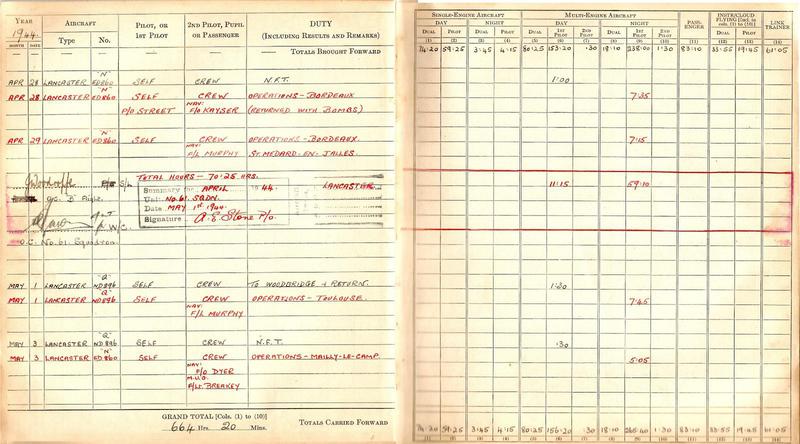 YEAR AIRCRAFT PILOT, OR 1ST PILOT 2ND PILOT, PUPIL OR PASSENGER DUTY (INCLUDING RESULTS AND REMARKS)
1944.
MONTH DATE Type No.
TOTALS BROUGHT FORWARD
APR 28 LANCASTER "N" ED860 SELF CREW N.F.T.
APR 28 LANCASTER "N" ED860 SELF CREW OPERATIONS - BORDEAUX
P/O STREET NAV: F/O KAYSER (RETURNED WITH BOMBS)
APR 29 LANCASTER "N" ED860 SELF CREW OPERATIONS - BORDEAUX.
NAV: F/L MURPHY ST. MEDARD-EN-JALLES.
S/L TOTAL HOURS - 70·25 HRS.
Summary for APRIL 1944. LANCASTER
O/C "B" Flight.
Unit No. 61. SQDN.
Date MAY 1st 1944.
Signature A. E. Stone P/O.
W/C.
O.C. No. 61. Squadron.
MAY 1 LANCASTER "Q" ND896 SELF CREW TO WOODBRIDGE & RETURN.
MAY 1 LANCASTER "Q" ND896 SELF CREW OPERATIONS - TOULOUSE.
NAV: F/L MURPHY
MAY 3 LANCASTER "Q" ND896 SELF CREW N.F.T.
MAY 3 LANCASTER "N" ED860 SELF CREW OPERATIONS - MAILLY-LE-CAMP.
NAV: F/O DYER
M.U.G.
F/LT. BREAKEY
GRAND TOTAL [Cols. (1) to (10)]
664 Hrs. 20 Mins.
TOTALS CARRIED FORWARD
SINGLE-ENGINE AIRCRAFT MULTI-ENGINE AIRCRAFT PASSENGER INSTR/CLOUD FLYING [Incl. in cols. (1) to (10)] LINK TRAINER
DAY NIGHT DAY NIGHT
DUAL PILOT DUAL PILOT DUAL 1ST PILOT 2ND PILOT DUAL 1ST PILOT 2ND PILOT DUAL PILOT
(1) (2) (3) (4) (5) (6) (7) (8) (9) (10) (11) (12) (13) (14)
74·20 59·25 3·45 4·15 80·25 153·20 ·30 18·10 238·00 1·30 83·10 33·55 19·45 61·05
1·00
7·35
7·15
11·15 59·10
7·45
·30
5·05
74·20 59·25 3·45 4·15 80·25 156·20 ·30 18·10 265·40 1·30 83·10 33·55 19·45 61·05
(1) (2) (3) (4) (5) (6) (7) (8) (9) (10) (11) (12) (13) (14)